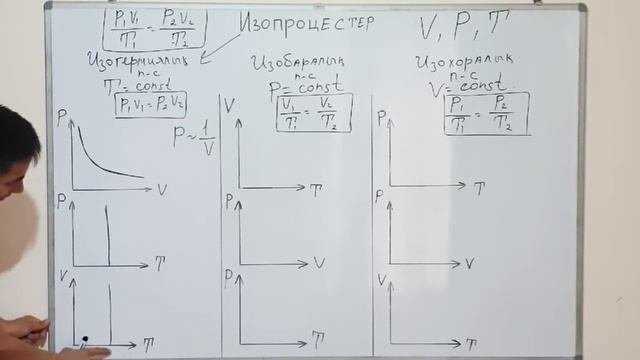 P₁V₁/T₁ = P₂V₂/T₂
Изопроцестер
V, P, T
Изотермиялық
п-с
T = const
P₁V₁ = P₂V₂
P ~ 1/V
P
V
P
T
V
T
Изобаралық
п-с
P = const
V₁/T₁ = V₂/T₂
V
T
P
V
P
T
Изохоралық
п-с
V = const.
P₁/T₁ = P₂/T₂
P
T
P
V
V
T